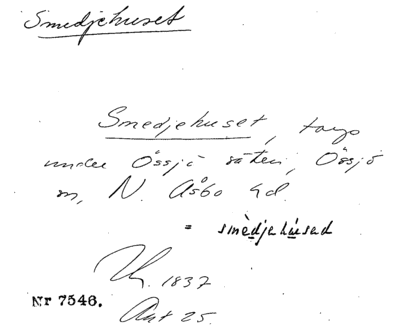 Smedjehuset
Smedjehuset, torp
under Össjö säteri, Össjö
sn, N. Åsbo hd.
= smèdjahúsad
1837
Nr 7546. Akt 25.